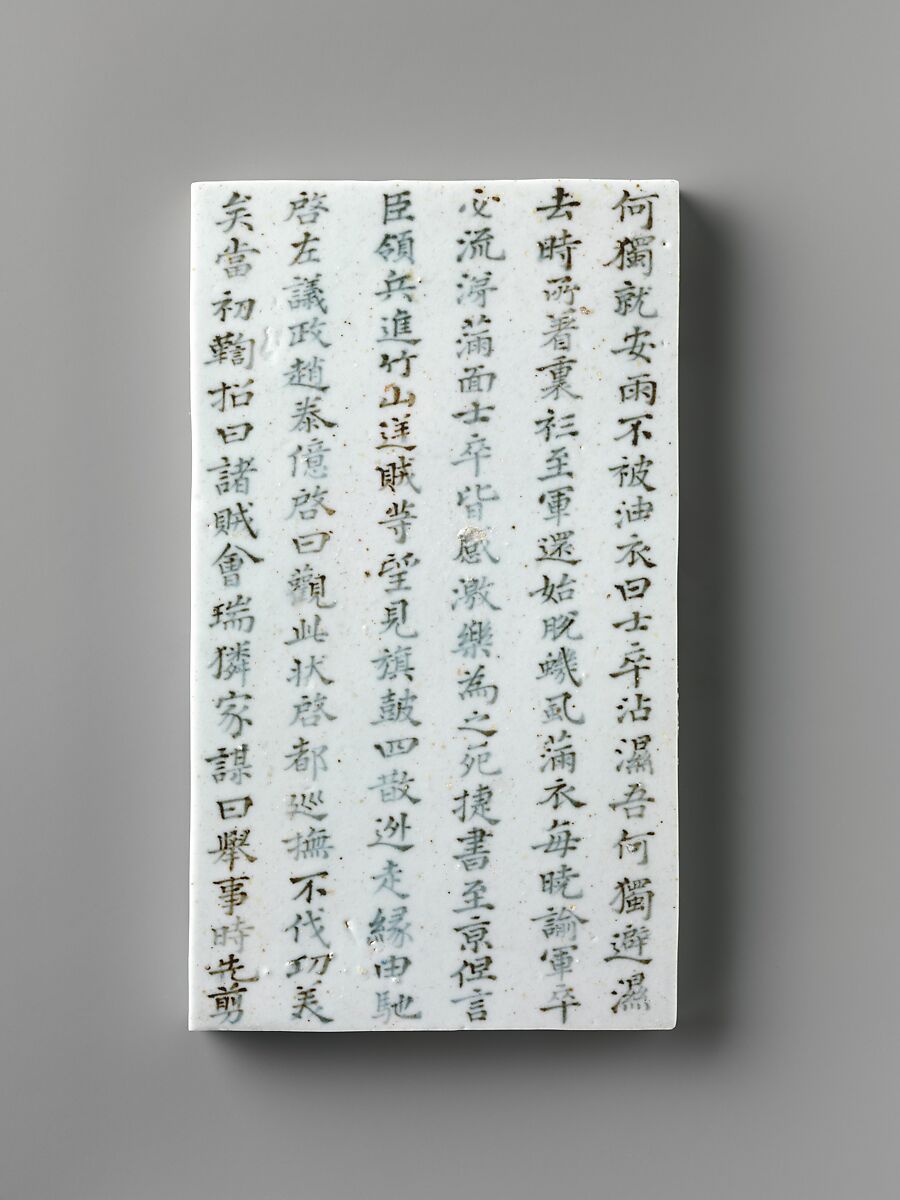 何獨就安雨不被油衣曰士卒沾濕吾何獨避濕
去時所着裏衫至軍還始脫蟣虱滿衣每曉諭軍卒
必流涕滿面士卒皆感激樂為之死捷書至京但言
臣領兵進竹山逆賊等望見旗鼓四散迯走緣由馳
啓左議政趙泰億啓曰觀此狀啓都巡撫不伐功美
矣當初鞫招曰諸賊會瑞獜家謀曰擧事時先剪